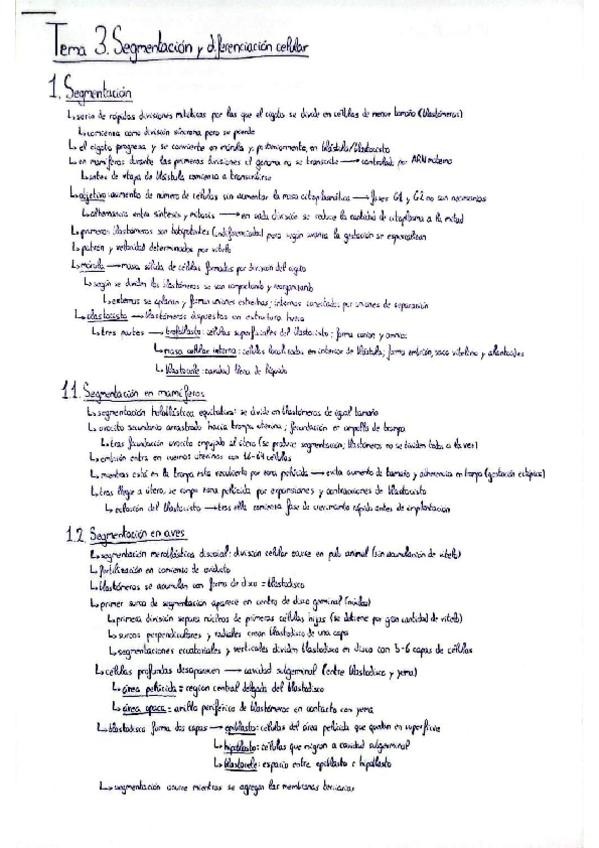 Tema 3. Segmentación y diferenciación celular
1. Segmentación
↳ serie de rápidas divisiones mitóticas por las que el cigoto se divide en células de menor tamaño (blastómeros)
↳ comienza como división síncrona pero se pierde
↳ el cigoto progresa y se convierte en mórula y, posteriormente, en blástula/blastocisto
↳ en mamíferos durante las primeras divisiones el genoma no se transcribe → controlado por ARN materno
↳ antes de etapa de blástula comienza a transcribirse
↳ objetivo: aumento de número de células sin aumentar la masa citoplasmática → fases G1 y G2 no son necesarias
↳ alternancia entre síntesis y mitosis → en cada división se reduce la cantidad de citoplasma a la mitad
↳ primeros blastómeros son totipotentes (indiferenciados) pero según avanza la gestación se especializan
↳ patrón y velocidad determinados por vitelo
↳ mórula → masa sólida de células formadas por división del cigoto
↳ según se dividen los blastómeros se van compactando y reorganizando
↳ externas se aplanan y forma uniones estrechas; internas conectadas por uniones de separación
↳ blastocisto → blastómeros dispuestos en estructura hueca
↳ tres partes → trofoblasto: células superficiales del blastocisto; forma corion y amnios
↳ masa celular interna: células localizadas en interior de blástula; forma embrión, saco vitelino y alantoides
↳ blastocele: cavidad llena de líquido
1.1. Segmentación en mamíferos
↳ segmentación holoblástica equitativa: se divide en blastómeros de igual tamaño
↳ ovocito secundario arrastrado hacia trompa uterina; fecundación en ampolla de trompa
↳ tras fecundación ovocito empujado al útero (se produce segmentación; blastómeros no se dividen todos a la vez)
↳ embrión entra en cuernos uterinos con 16-64 células
↳ mientras está en la trompa está recubierto por zona pelúcida → evita aumento de tamaño y adherencia en trompa (gestación ectópica)
↳ tras llegar a útero, se rompe zona pelúcida por expansiones y contracciones de blastocisto
↳ eclosión del blastocisto → tras ella comienza fase de crecimiento rápido antes de implantación
1.2. Segmentación en aves
↳ segmentación meroblástica discoidal: división celular ocurre en polo animal (sin acumulación de vitelo)
↳ fertilización en comienzo de oviducto
↳ blastómeros se acumulan con forma de disco = blastodisco
↳ primer surco de segmentación aparece en centro de disco germinal
↳ primera división separa núcleos de primeras células hijas (se detiene por gran cantidad de vitelo)
↳ surcos perpendiculares y radiales crean blastodisco de una capa
↳ segmentaciones ecuatoriales y verticales dividen blastodisco en disco con 5-6 capas de células
↳ células profundas desaparecen → cavidad subgerminal (entre blastodisco y yema)
↳ área pelúcida = región central delgada del blastodisco
↳ área opaca = anillo periférico de blastómeros en contacto con yema
↳ blastodisco forma dos capas → epiblasto: células del área pelúcida que quedan en superficie
↳ hipoblasto: células que migran a cavidad subgerminal
↳ blastocele: espacio entre epiblasto e hipoblasto
↳ segmentación ocurre mientras se agregan las membranas terciarias